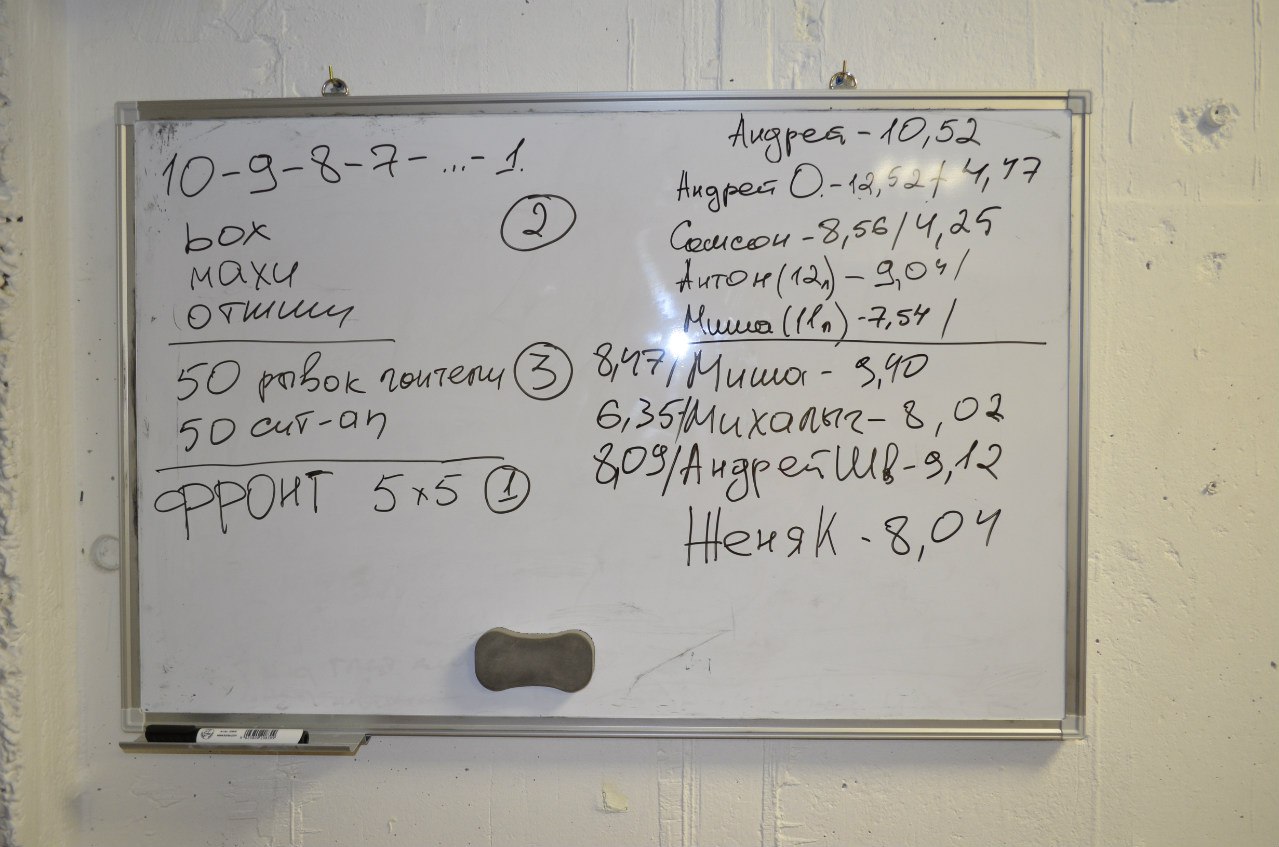 10-9-8-7-...-1.
②
box
махи
отжим
50 рывок гантели ③
50 сит-ап
ФРОНТ 5x5 ①
Андрей - 10,52
Андрей О. - 12,52 / 4,47
Самсон - 8,56/4,25
Антон (12л) - 9,04/
Миша (11л) - 7,54/
8,47/Миша - 9,40
6,35/Михалыч - 8,02
8,09/Андрей Шв - 9,12
Женя К - 8,04